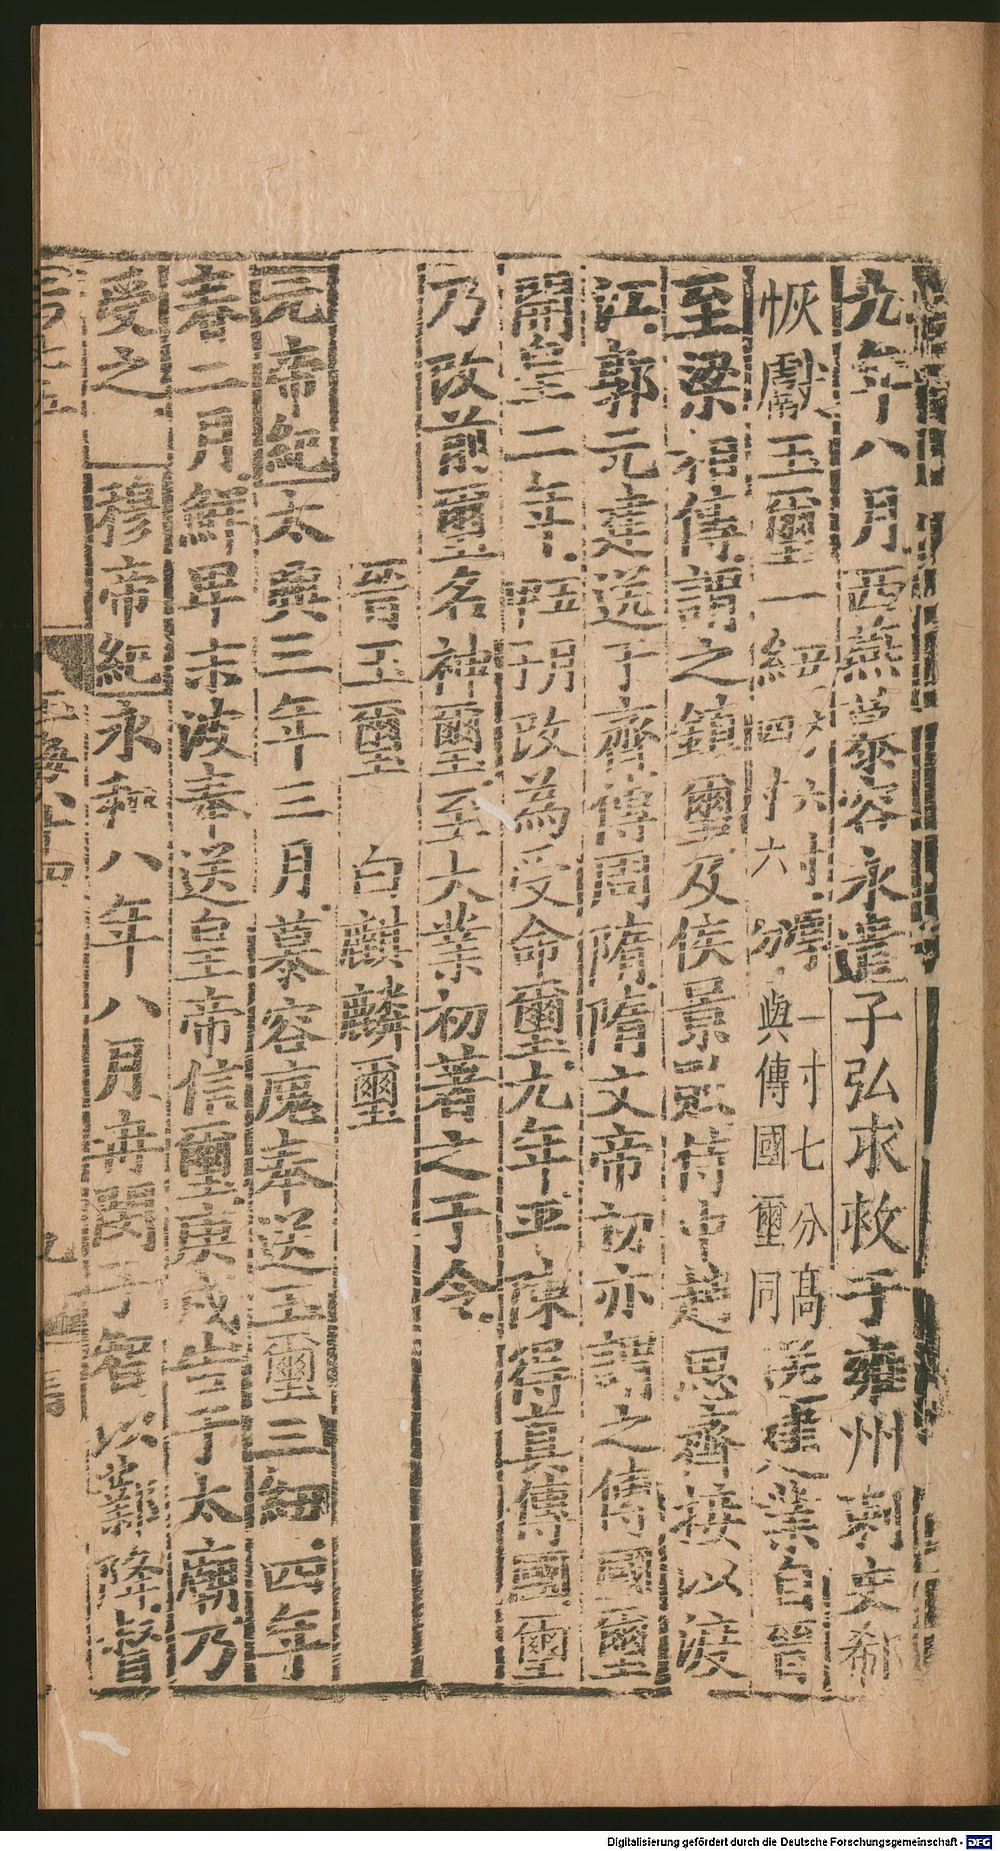 九年八月西燕慕容永遣子弘求救于雍州刺史郗
恢獻玉璽一紐方六寸厚一寸七分高四寸六分與傳國璽同送建業自晉
至梁相傳謂之鎮璽及侯景敗侍中趙思齊接以渡
江郭元建送于齊傳周隋隋文帝初亦謂之傳國璽
開皇二年 改為受命璽九年平陳得真傳國璽
乃改前璽名神璽至大業初著之于令
晉玉璽 白麒麟璽
元帝紀太興三年三月慕容廆奉送玉璽三紐四年
春二月鮮卑末波奉送皇帝信璽庚戌告于太廟乃
受之 穆帝紀永和八年八月冉閔子智以鄴降督
玉海八十四
Digitalisierung gefördert durch die Deutsche Forschungsgemeinschaft - DFG